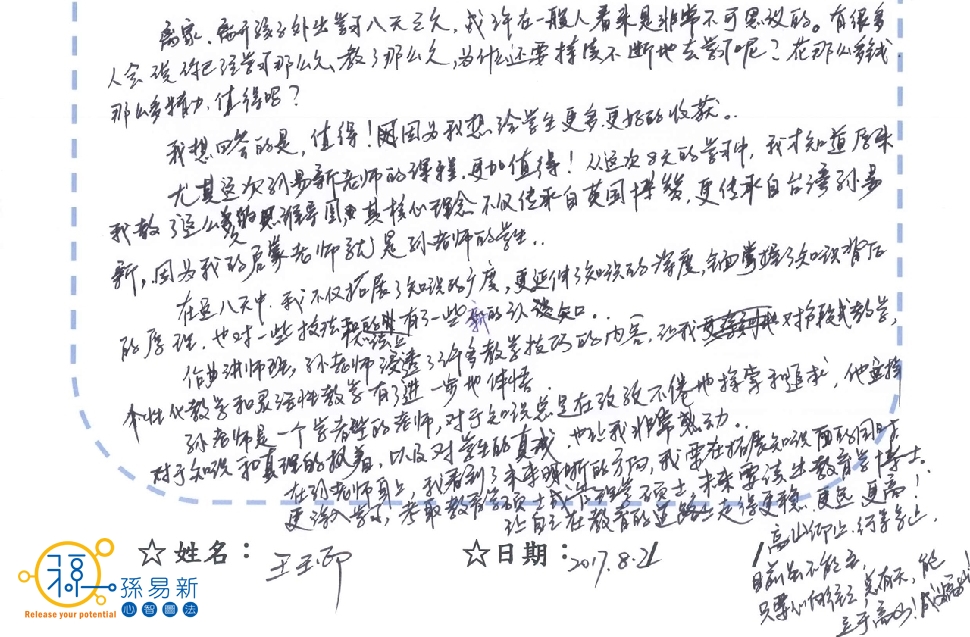 离家、离开孩子外出学习八天之久，或许在一般人看来是非常不可思议的。有很多
人会说你已经学习那么久、教了那么久，为什么还要持续不断地去学习呢？花那么多钱
那么多精力，值得吗？
我想回答的是，值得！因为我想给学生更多更好的收获。
尤其这次孙易新老师的课程，更加值得！从这次8天的学习中，我才知道原来
我教了这么多的思维导图，其核心理念不仅传承自英国博赞，更传承自台湾孙易
新，因为我的启蒙老师就是孙老师的学生。
在这八天中，我不仅拓展了知识的广度，更延伸了知识的深度，全面掌握了知识背后
的原理，也对一些技法有了一些新的认知。
作为讲师班，孙老师渗透了许多教学技巧的内容，让我对阶段式教学，
个性化教学和灵活性教学有了进一步地体悟。
孙老师是一个学者型的老师，对于知识总是在孜孜不倦地探索和追求，他坚持
对于知识和真理的执着，以及对学生的真诚，也让我非常感动。
在孙老师身上，我看到了未来的方向，我要在拓展知识面的同时
更深入学习，考取教育学硕士或管理学硕士，未来要读出教育学博士。
让自己在教育的道路上走得更稳、更远、更高！
高山仰止，行景行止，
目前虽不能至，
只要心向往之，总有天，能
至于高山！
☆姓名：王玉印
☆日期：2017.8.21
孫易新
心智圖法
Release your potential